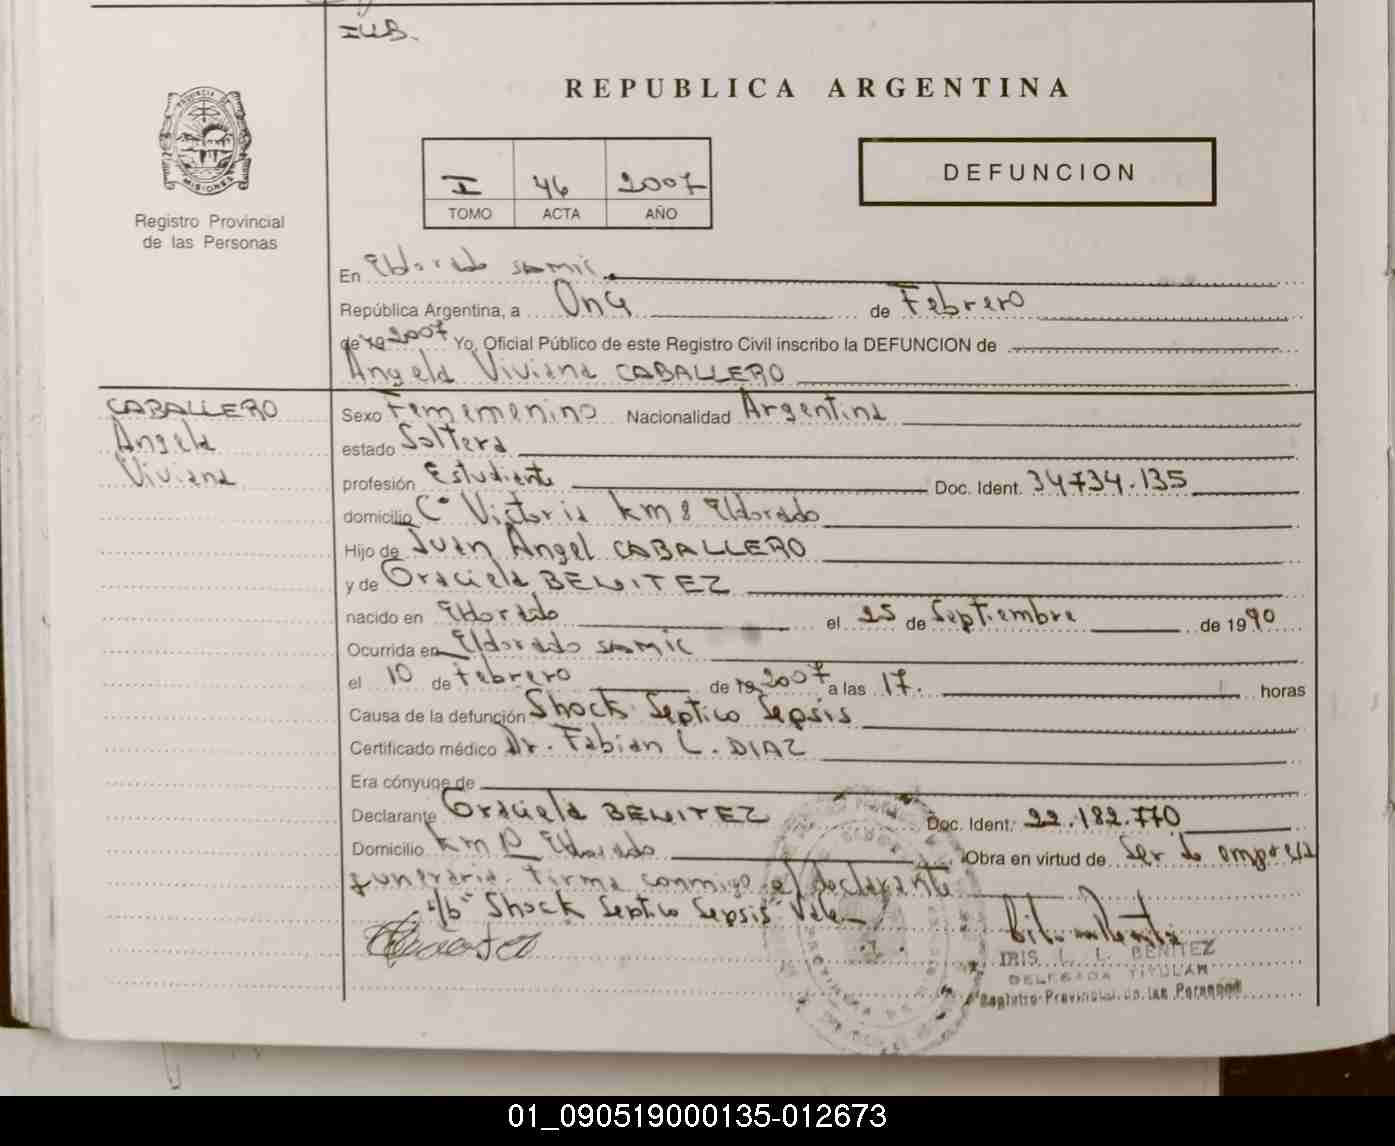 IUB.
REPUBLICA ARGENTINA
PROVINCIA DE
MISIONES
Registro Provincial
de las Personas
I 46 2007
TOMO ACTA AÑO
DEFUNCION
En Eldorado SAMIC.
República Argentina, a Once de Febrero
de 19 2007 Yo, Oficial Público de este Registro Civil inscribo la DEFUNCION de
Angela Viviana CABALLERO
CABALLERO
Angela
Viviana
Sexo Fememenino Nacionalidad Argentina
estado Soltera
profesión Estudiante Doc. Ident. 34734.135
domicilio Cº Victoria km 8 Eldorado
Hijo de Juan Angel CABALLERO
y de Graciela BENITEZ
nacido en Eldorado el 25 de Septiembre de 1990
Ocurrida en Eldorado SAMIC
el 10 de febrero de 19 2007 a las 17. horas
Causa de la defunción Shock Septico Sepsis
Certificado médico Dr. Fabian L. DIAZ
Era cónyuge de
Declarante Graciela BENITEZ Doc. Ident. 22.182.770
Domicilio km Eldorado Obra en virtud de Ser de empresa
funeraria. Firma conmigo el declarante
s/b "Shock Septico Sepsis" Vale
IRIS L. L. BENITEZ
DELEGADA TITULAR
Registro Provincial de las Personas
01_090519000135-012673